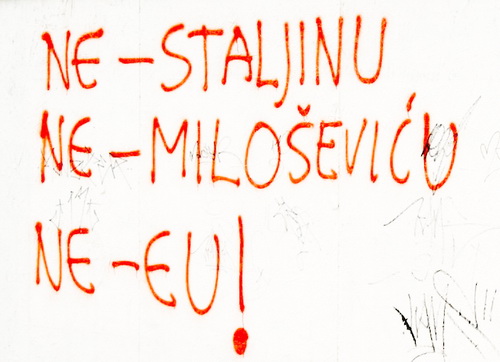 NE-STALJINU
NE-MILOŠEVIĆU
NE-EU!